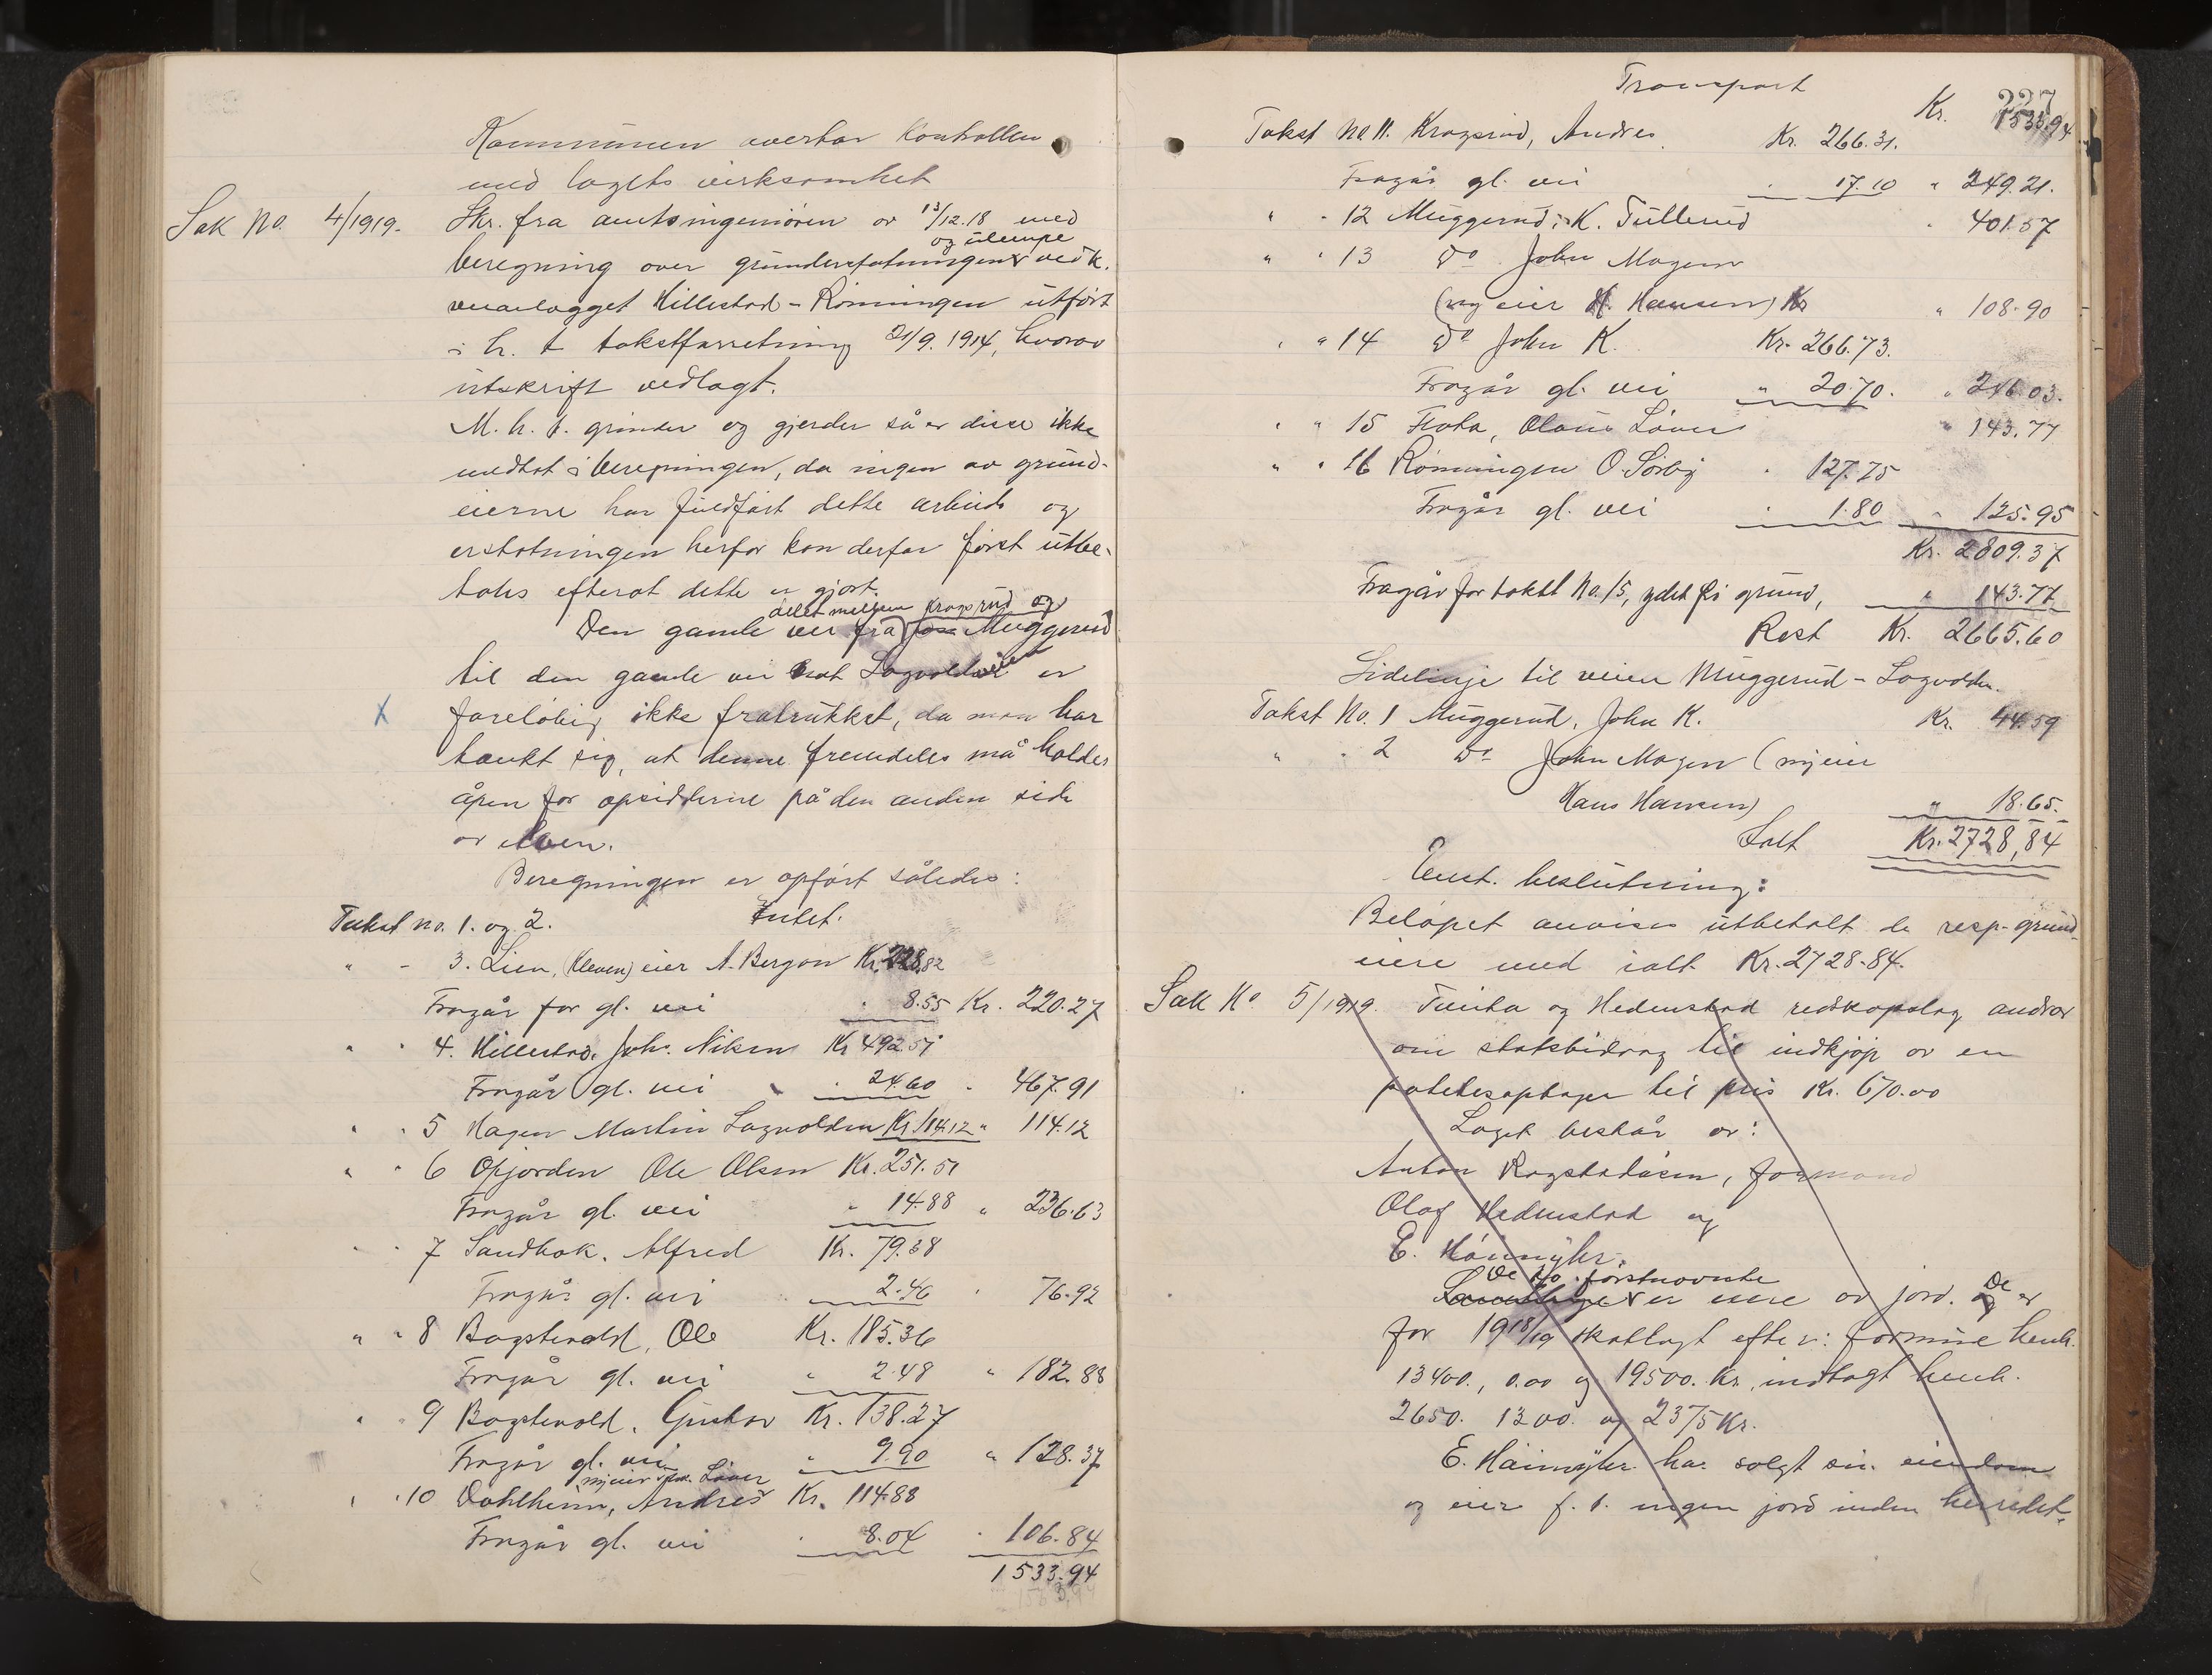 Kommunen overtar kontrollen
med lagets virksomhet
Sak No. 4/1919. Skr. fra amtsingeniören av 13/12.18 med
og ulempe
beregning over grunderstatningen vedk.
veianlægget Hillestad - Rönningen utfört
i h. t. takstforretning 21/9. 1914, hvorav
utskrift vedlagt.
M. h. t. grinder og gjerder så er disse ikke
medtat i beregningen, da ingen av grund-
eierne har fuldfört dette arbeide og
erstatningen herfor kan derfor först utbe-
tales efterat dette er gjort.
delet mellem Kragsrud og
Den gamle vei fra Muggerud
til den gamle vei mot Lagvoldveien er
X foreløbig ikke fratrukket, da man har
tænkt sig, at denne fremdeles må holdes
åpen for opsidderne på den anden side
av elven.
Beregningen er opfört således:
Takst no. 1. og 2. Intet.
" - 3. Lien, (Kleven) eier A. Bergan Kr. 228,82
Fragår for gl. vei " 8.55 Kr. 220.27
" " 4. Hillestad. Joh. Nilsen Kr 492.51
Fragår gl. vei " 24.60 " 467.91
" " 5 Hagen Martin Lagvolden Kr. 114.12 " 114.12
" " 6 Opjorden Ole Olsen Kr. 251.51
Fragår gl. vei " 14.88 " 236.63
" " 7 Sandbak. Alfred Kr. 79.38
Fragår gl. vei " 2.46 " 76.92
" " 8 Bagstevold, Ole Kr. 185.36
Fragår gl. vei " 2.48 " 182.88
" " 9 Bagstevold. Gustav Kr. 138.27
Fragår gl. vei " 9.90 " 128.37
ny eier Löver
" " 10 Dahlheim, Andres Kr. 114.88
Fragår gl. vei " 8.04 " 106.84
1533.94
Transport
227
Kr. 1533.94
Takst No 11. Kragsrud, Andres. Kr. 266.31.
Fragår gl. vei " 17.10 " 249.21.
" " 12 Muggerud, K. Tullerud " 401.57
" " 13 Do John Mogens
(ny eier H. Hansen) Kr " 108.90
" " 14 Do John K. Kr. 266.73.
Fragår gl. vei " 20.70. " 246.03.
" " 15 Flota, Olaus Löver " 143.77
" " 16 Rönningen O. Sörby " 127.75
Fragår gl. vei " 1.80 " 125.95
Kr. 2809.37
Fragår for takst No. 15, ydet fri grund, " 143.77
Rest Kr. 2665.60
Sidelinje til veien Muggerud - Lagvolden.
Takst No. 1 Muggerud, John K. Kr. 44.59
" " 2 Do John Mogens (ny eier
Hans Hansen) " 18.65.
Ialt Kr. 2728,84
Enst. beslutning:
Belöpet anvises utbetalt de resp. grund-
eiere med ialt Kr. 2728.84.
Sak No 5/1919. Tunta og Hedenstad redskapslag andrar
om statsbidrag til indkjöp av en
potetesoptager til pris Kr. 670.00
Laget består av:
Anton Ragstadåsen, formand
Olaf Hedenstad og
E. Haimyhr.
De to förstnævnte
er eiere av jord. De er
for 1918/19 skatlagt efter: formue henh.
13400., 0.00 og 19500. kr., indtægt henh.
2650. 1300. og 2375 Kr.
E. Haimyhr har solgt sin eiendom
og eier f. t. ingen jord inden herredet.